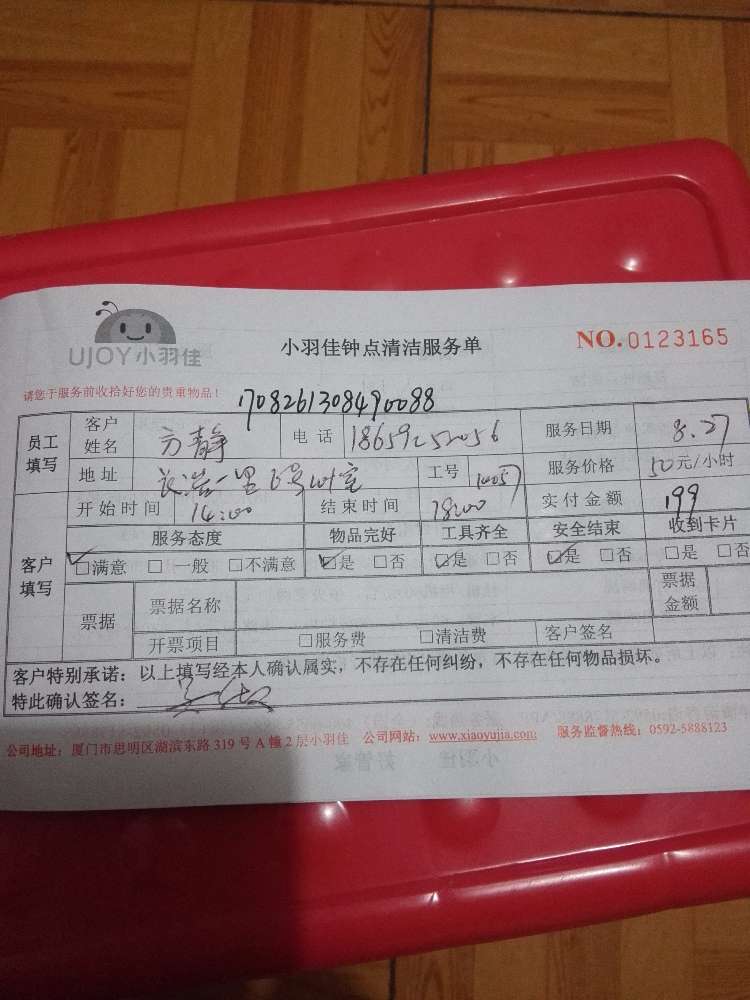 UJOY小羽佳
小羽佳钟点清洁服务单
NO.0123165
请您于服务前收拾好您的贵重物品!
1708261308490088
员工填写 客户姓名 方静 电话 18659252056 服务日期 8.27
地址 长浩一里 号 室 工号 服务价格 50元/小时
客户填写 开始时间 14:00 结束时间 18:00 实付金额 199
服务态度 物品完好 工具齐全 安全结束 收到卡片
☑满意 □一般 □不满意 ☑是 □否 ☑是 □否 ☑是 □否 □是 □否
票据 票据名称 票据金额
开票项目 □服务费 □清洁费 客户签名
客户特别承诺:以上填写经本人确认属实,不存在任何纠纷,不存在任何物品损坏。
特此确认签名:
公司地址:厦门市思明区湖滨东路 319 号 A 幢 2 层小羽佳 公司网站:www.xiaoyujia.com 服务监督热线:0592-5888123